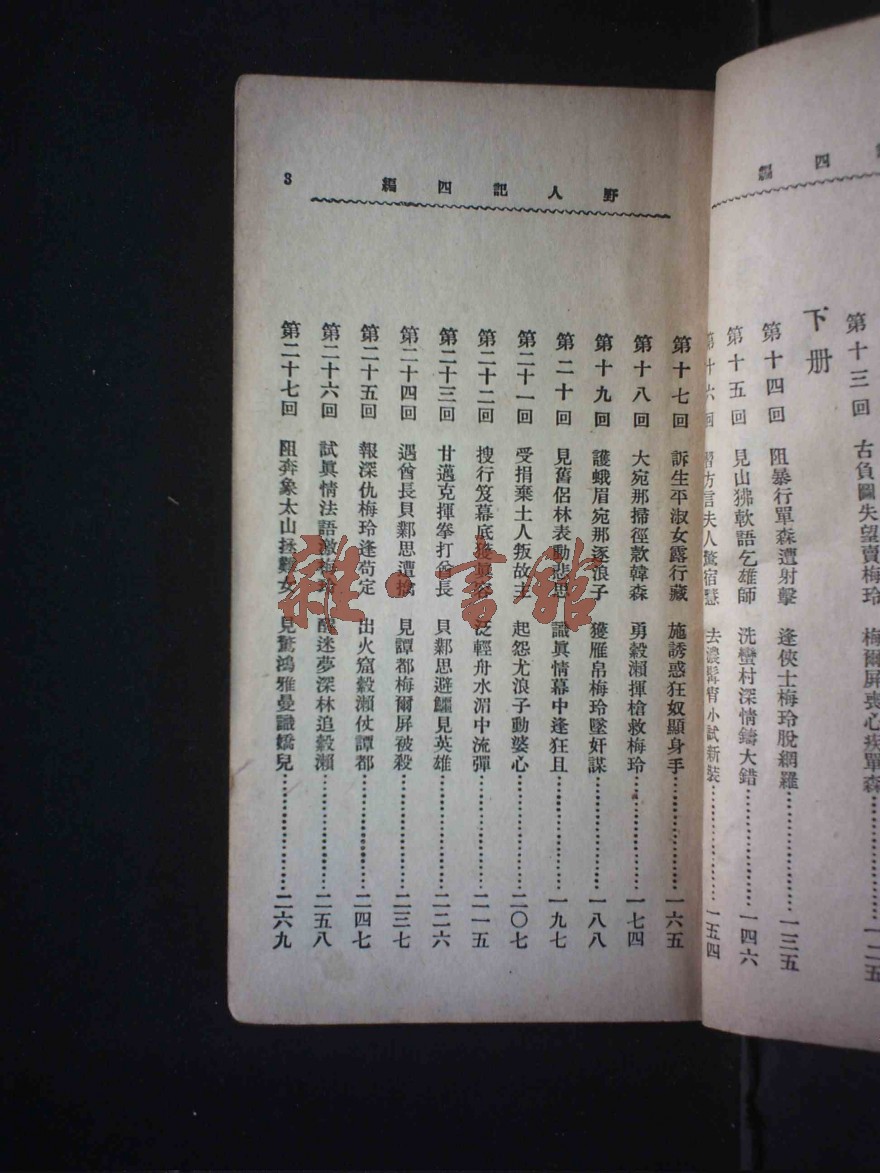 四編
第十三回 古負圖失望賣梅玲 梅爾屏喪心疾單森……一二五
下册
第十四回 阻暴行單森遭射擊 逢俠士梅玲脫網羅……一三五
第十五回 見山狒軟語乞雄師 洗蠻村深情鑄大錯……一四六
第十六回 習方言夫人驚宿慧 去濃髯宵小試新裝……一五四
野人記四編
3
第十七回 訴生平淑女露行藏 施誘惑狂奴顯身手……一六五
第十八回 大宛那掃徑款韓森 勇穀瀨揮槍救梅玲……一七四
第十九回 護蛾眉宛那逐浪子 獲雁帛梅玲墜奸謀……一八八
第二十回 見舊侶林表動悲思 識眞情幕中逢狂且……一九七
第二十一回 受捐棄土人叛故主 起怨尤浪子動婆心……二〇七
第二十二回 搜行笈幕底獲眞容 泛輕舟水湄中流彈……二一五
第二十三回 甘邁克揮拳打酋長 貝鄴思避鱷見英雄……二二六
第二十四回 遇酋長貝鄴思遭擒 見譚都梅爾屏被殺……二三七
第二十五回 報深仇梅玲逢苟定 出火窟穀瀨仗譚都……二四七
第二十六回 試眞情法語激梅玲 醒迷夢深林追穀瀨……二五八
第二十七回 阻奔象太山拯難女 見驚鴻雅曼識嬌兒……二六九
雜·書館